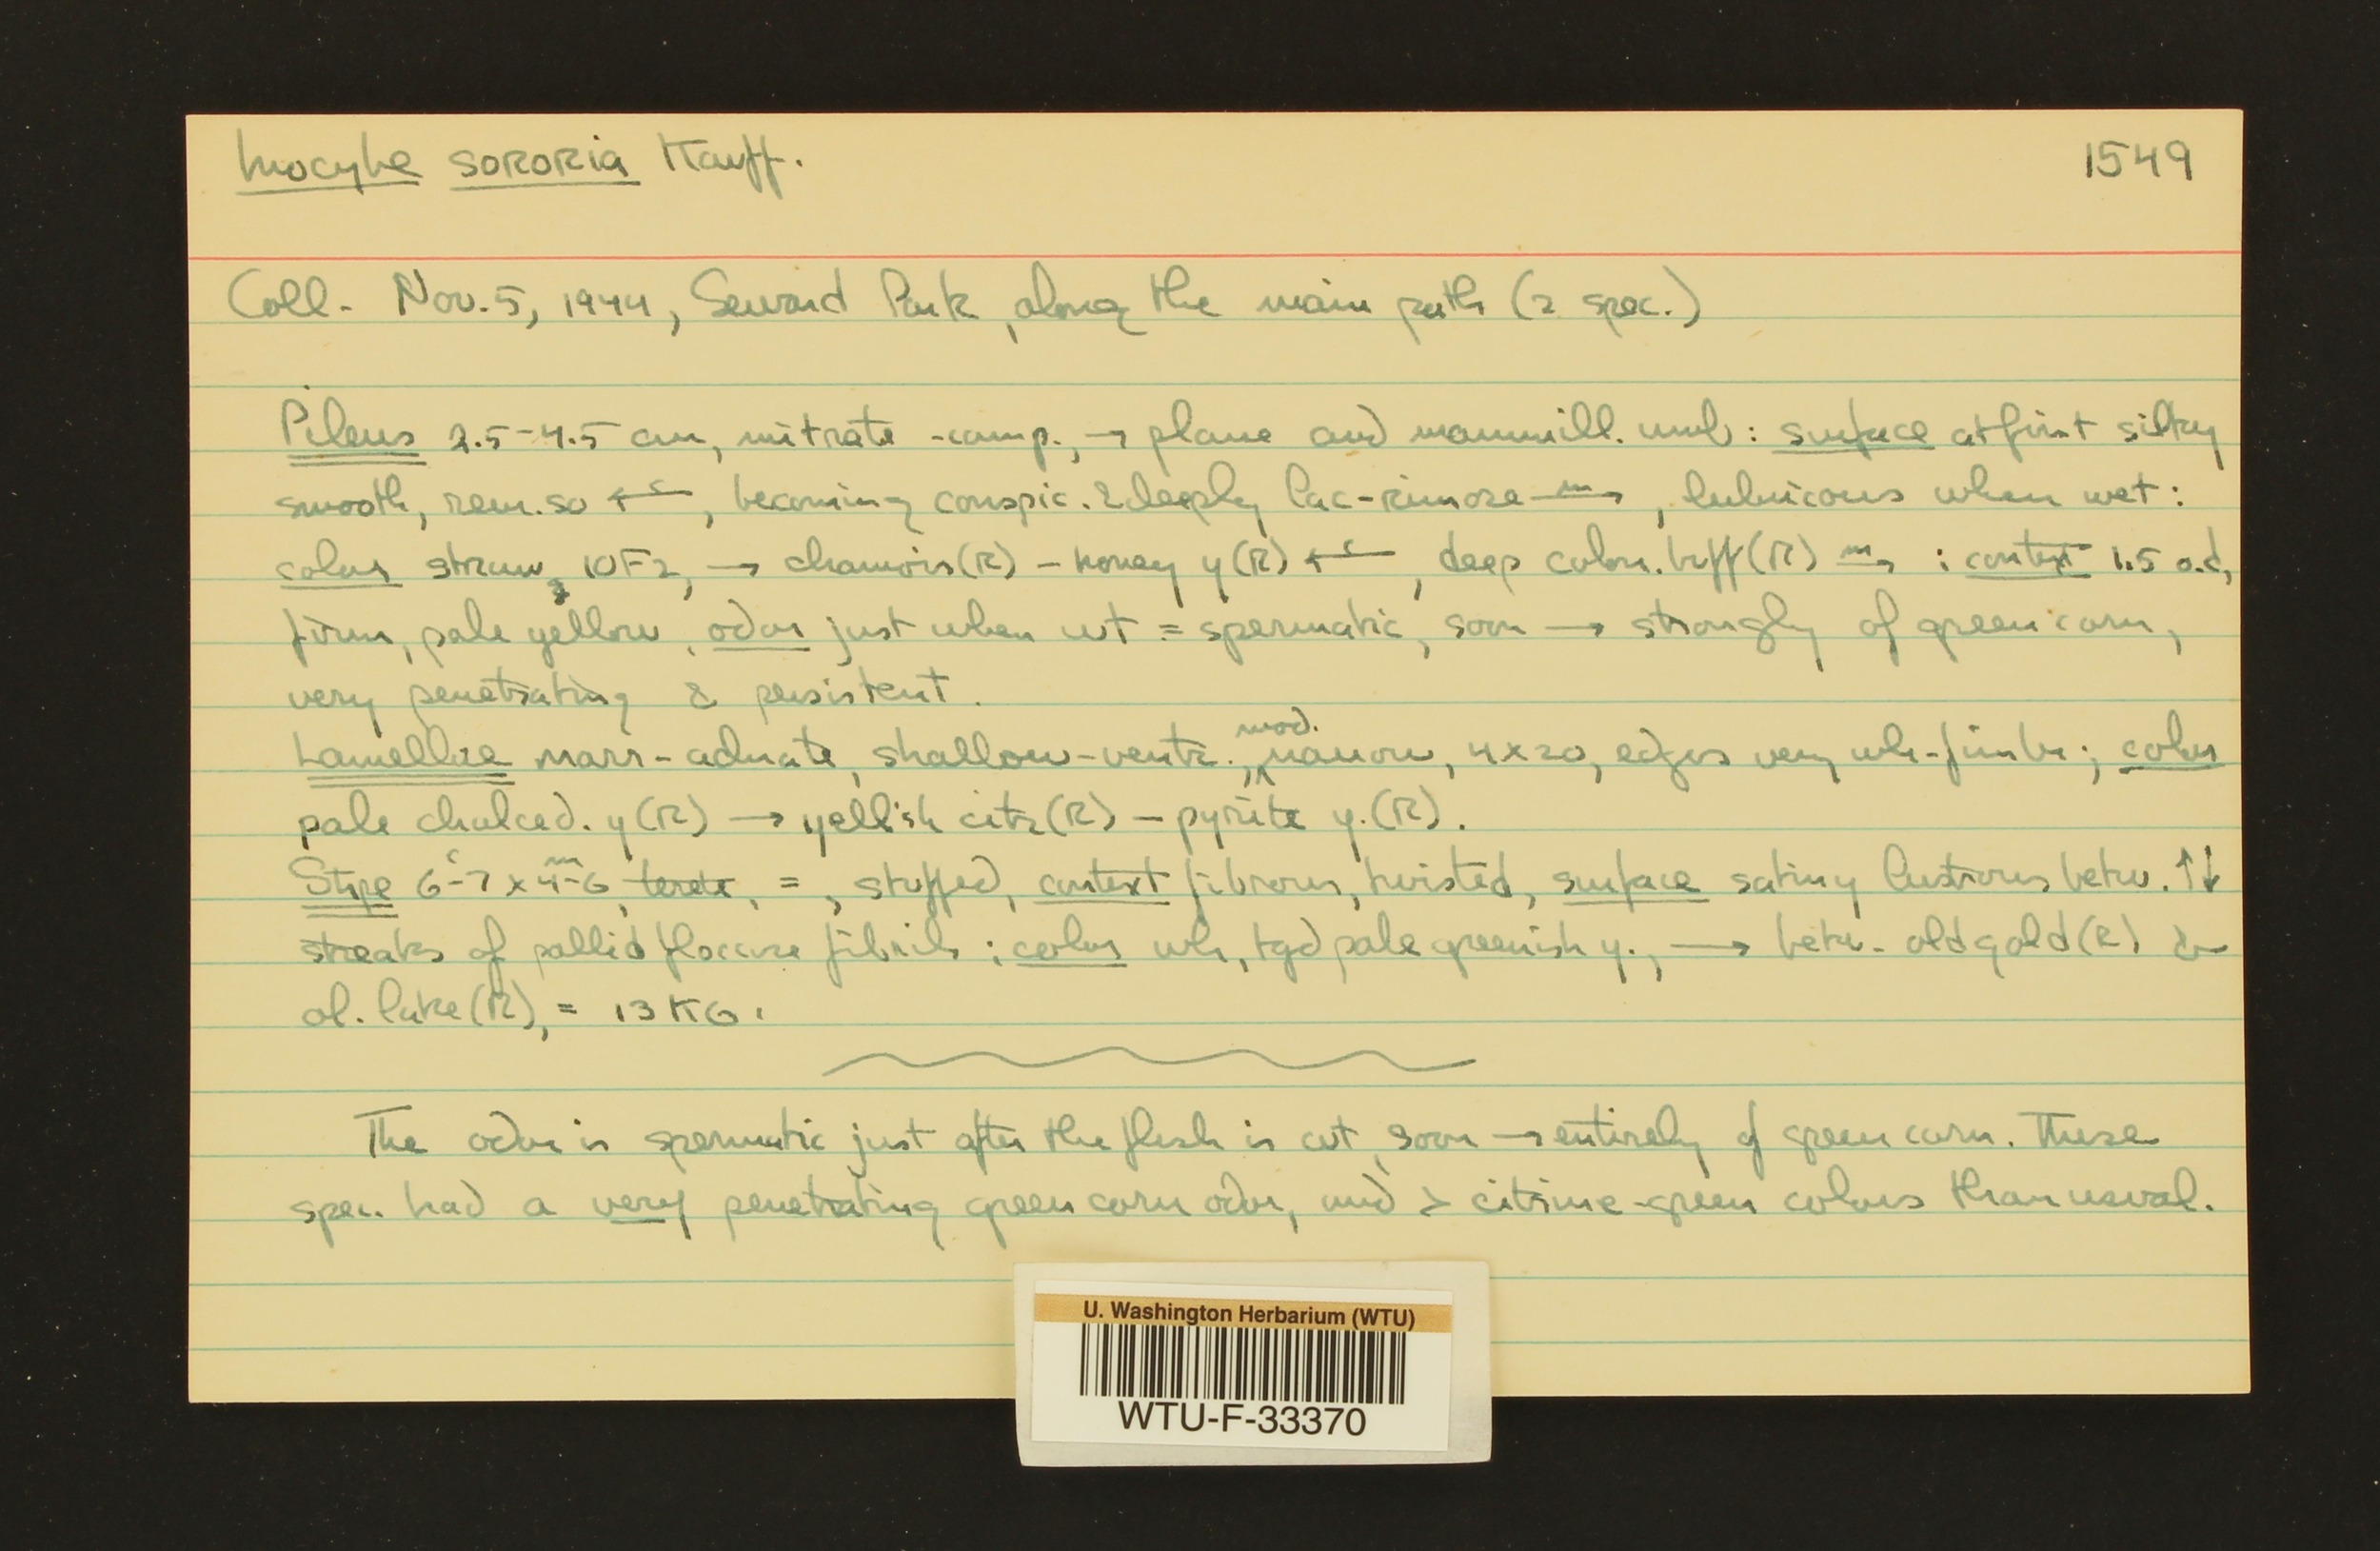 Inocybe sororia Kauff. 1549
Coll- Nov. 5, 1944, Seward Park, along the main path (2 spec.)
Pileus 2.5-4.5 cm, mitrate-camp., → plane and mammill. umb: surface at first silky
smooth, rem. so ←c, becoming conspic. & deeply lac-rimose m→, lubricous when wet:
color straw, 10F2, → chamois (R) - honey y (R) ←c, deep colon. buff (R) m→ : context 1.5 o.d,
firm, pale yellow, odor just when cut = spermatic, soon → strongly of green corn,
very penetrating & persistent.
Lamellae narr-adnate, shallow-ventr., mod. narrow, 4x20, edges very wh-fimbr; color
pale chalced. y (R) → yell'sh citr (R) - pyrite y. (R).
Stipe 6-7c x 4-6m, terete, =, stuffed, context fibrous, twisted, surface satiny lustrous betw. ↑↓
streaks of pallid floccose fibrils; color wh, tgd pale greenish y., → betw- old gold (R) &
ol. lake (R), = 13 K6.
The odor is spermatic just after the flesh is cut, soon → entirely of green corn. These
spec. had a very penetrating green corn odor, and > citrine-green colors than usual.
U. Washington Herbarium (WTU)
WTU-F-33370